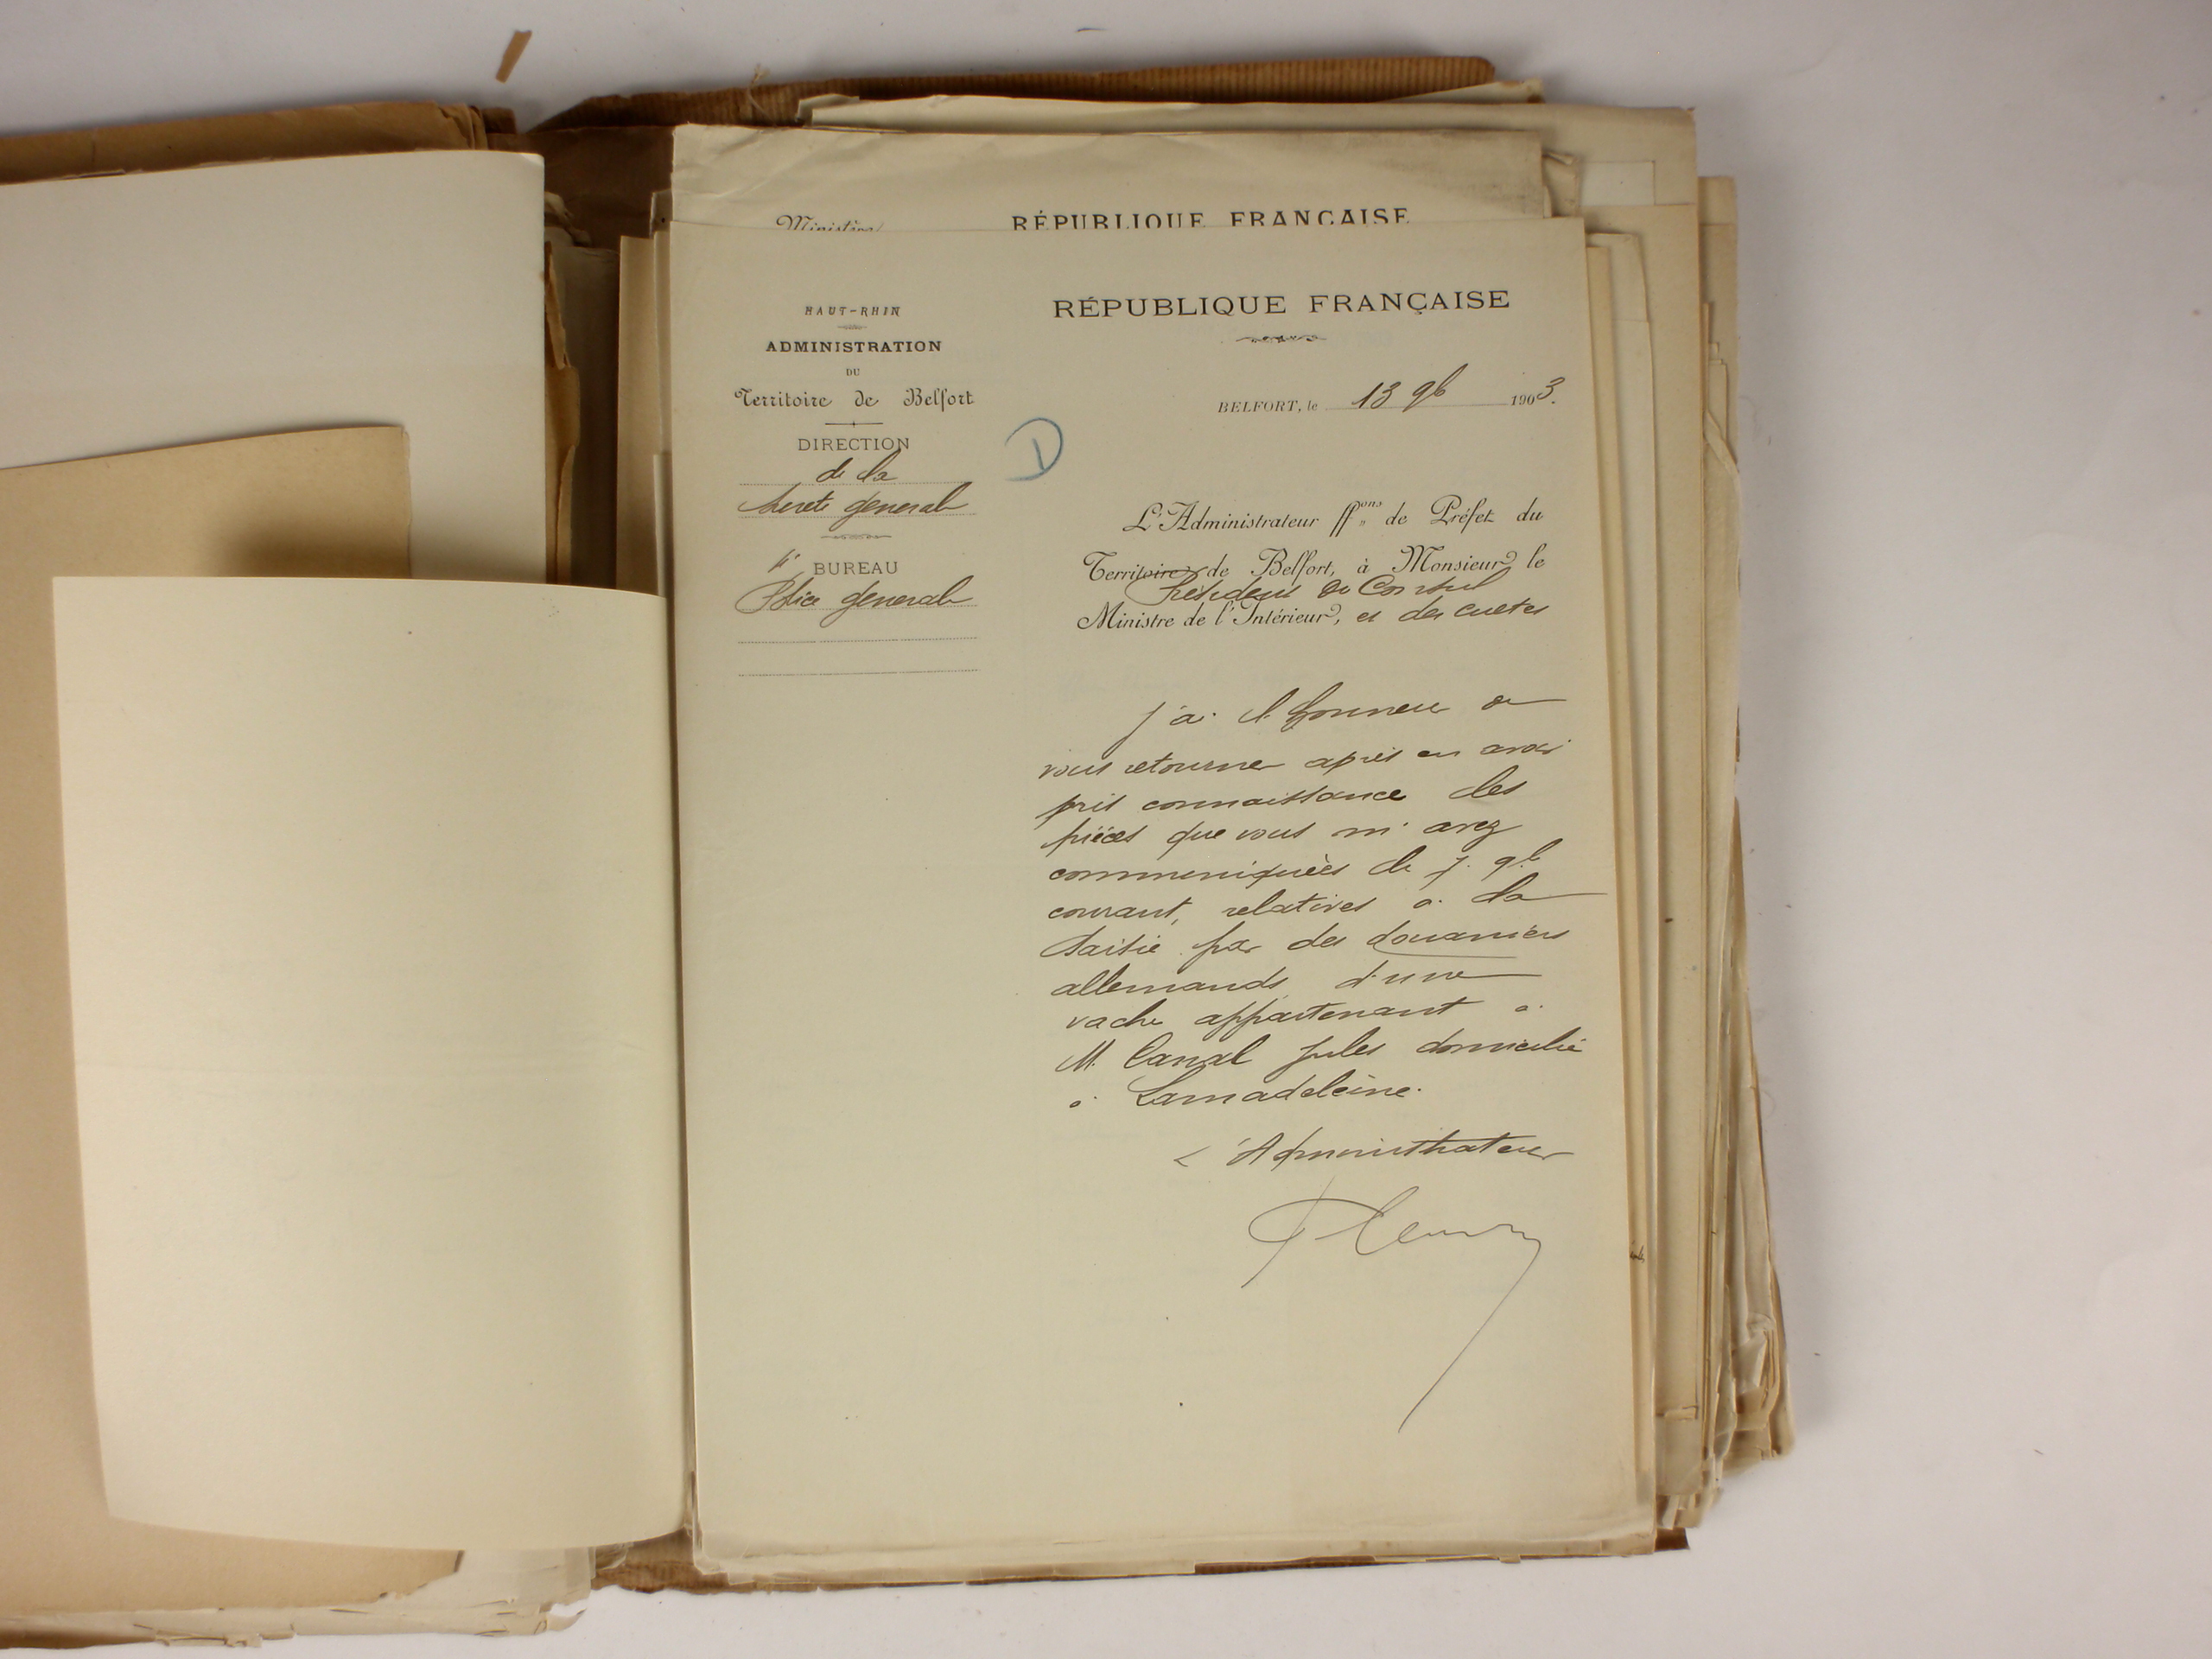 Ministère
RÉPUBLIQUE FRANÇAISE
HAUT-RHIN
ADMINISTRATION
DU
Territoire de Belfort
DIRECTION
de la
Sureté general
BUREAU
Police general
RÉPUBLIQUE FRANÇAISE
BELFORT, le 13 9b 1903.
L'Administrateur ff.ons de Préfet du
Territoire de Belfort, à Monsieur le
Président du Conseil
Ministre de l'Intérieur, et des cultes
J'ai l'honneur de
vous retourner après en avoir
pris connaissance les
pièces que vous m'avez
communiquées le 7. 9b
courant, relatives à la
saisie par des douaniers
allemands d'une
vache appartenant à
M. Canal Jules domicilié
à Lamadeleine.
L'Administrateur